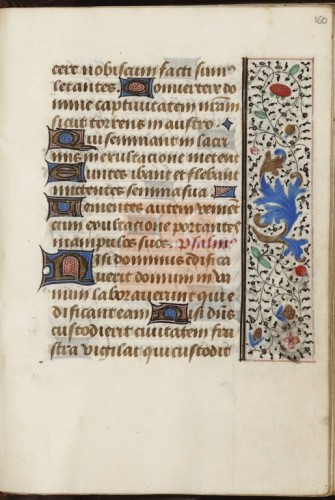 160
cere nobiscum facti sumꝰ
letantes. Convertere do
mine captivitatem nr̃am
sicut torrens in austro.
Qui seminant in lacri
mis in exultacione metent
Euntes ibant et flebant
mittentes semina sua.
Venientes autem venient
cum exultacione portantes
manipulos suos. psalmꝰ
Nisi dominus edifica
verit domum in va
num laboraverunt qui e
dificant eam Nisi dn̄s
custodierit civitatem fru
stra vigilat qui custodit